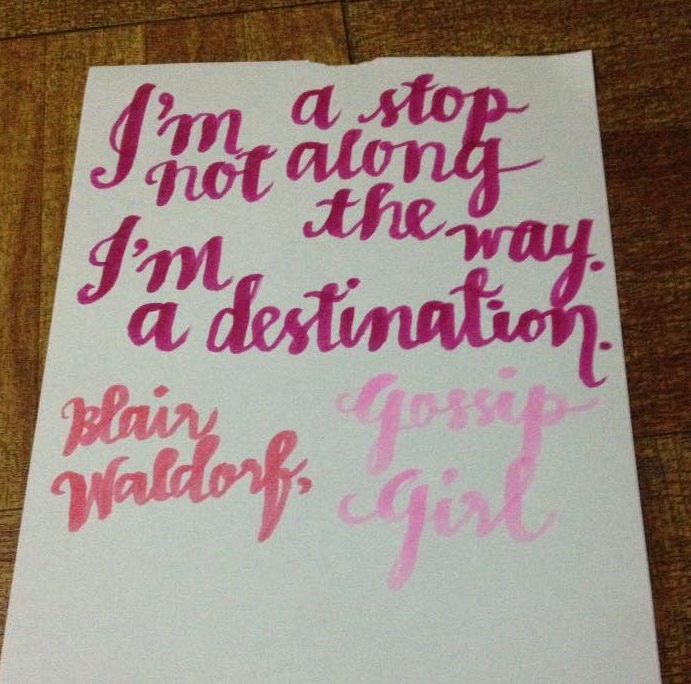 I'm not a stop
along
the way.
I'm
a destination.
Blair
Waldorf,
Gossip
Girl